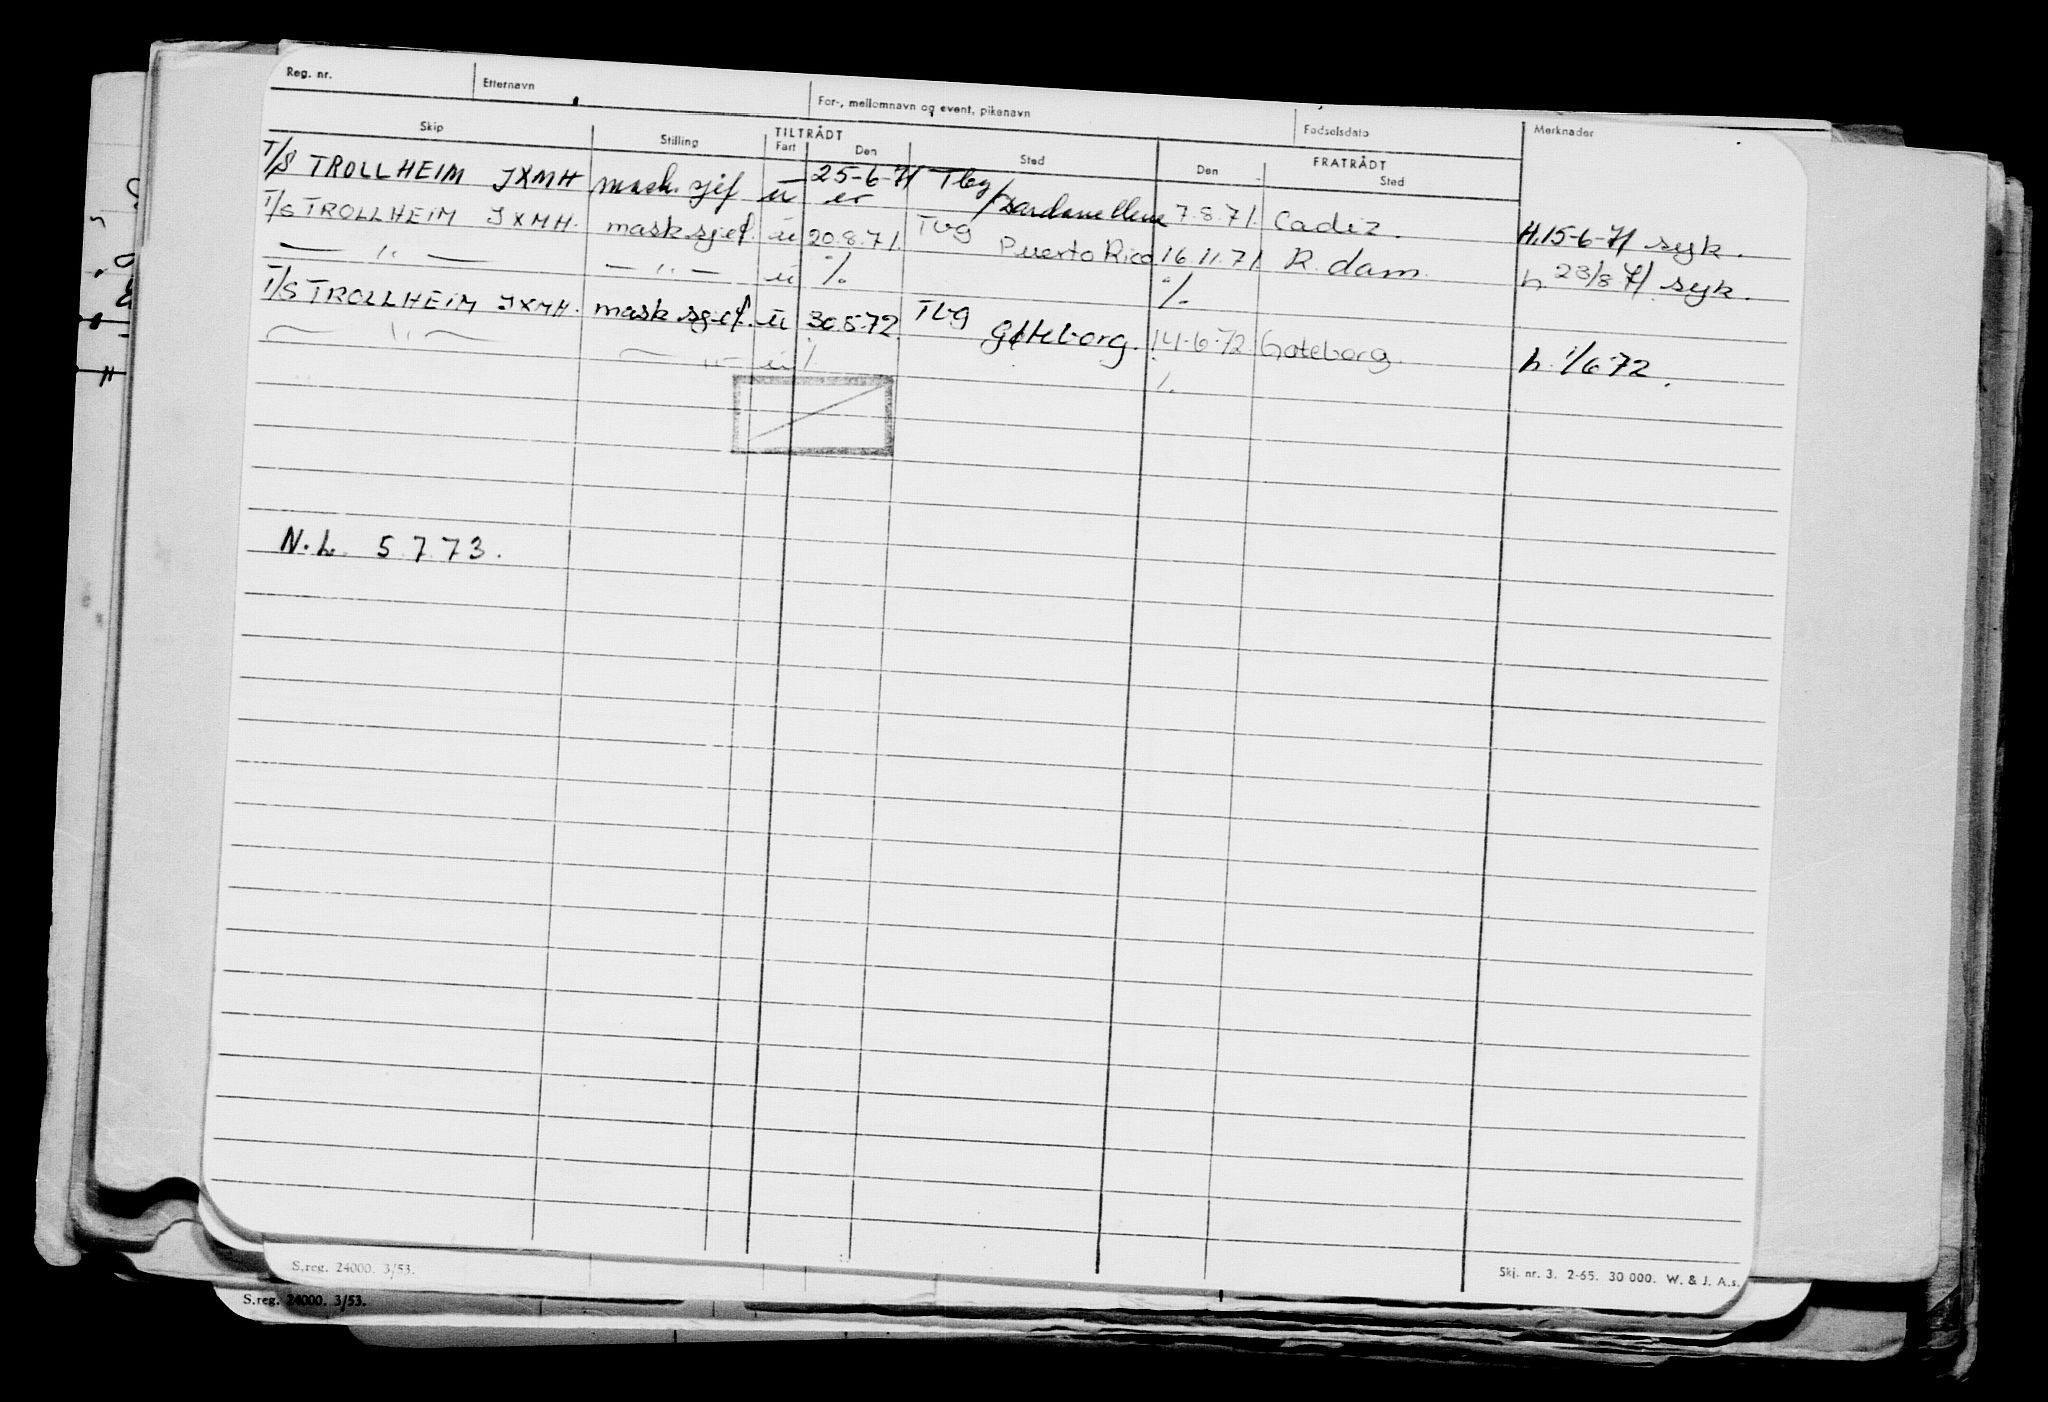 Reg. nr. Etternavn For-, mellomnavn og event. pikenavn Fødselsdato Merknader
Skip Stilling TILTRÅDT Fart Den Sted FRATRÅDT Den Sted
T/S TROLLHEIM JXMH mask. sjef u 25-6-71 Tbg/Dardanellene 7.8.71. Cadiz. H.15-6-71 syk.
T/S TROLLHEIM JXMH. mask sjef. u 20.8.71. Tbg Puerto Rico 16.11.71 R.dam. h 23/8 71 syk.
— " — — " — u %. %.
T/S TROLLHEIM JXMH. mask sjef. u 30.5.72. Tbg Gøteborg. 14-6-72. Goteborg. h. 1/6 72.
— " — — " — u
N.L. 5.7.73.
S.reg. 24000. 3/53. Skj. nr. 3. 2-65. 30 000. W. & J. A.s.
S.reg. 24000. 3/53.